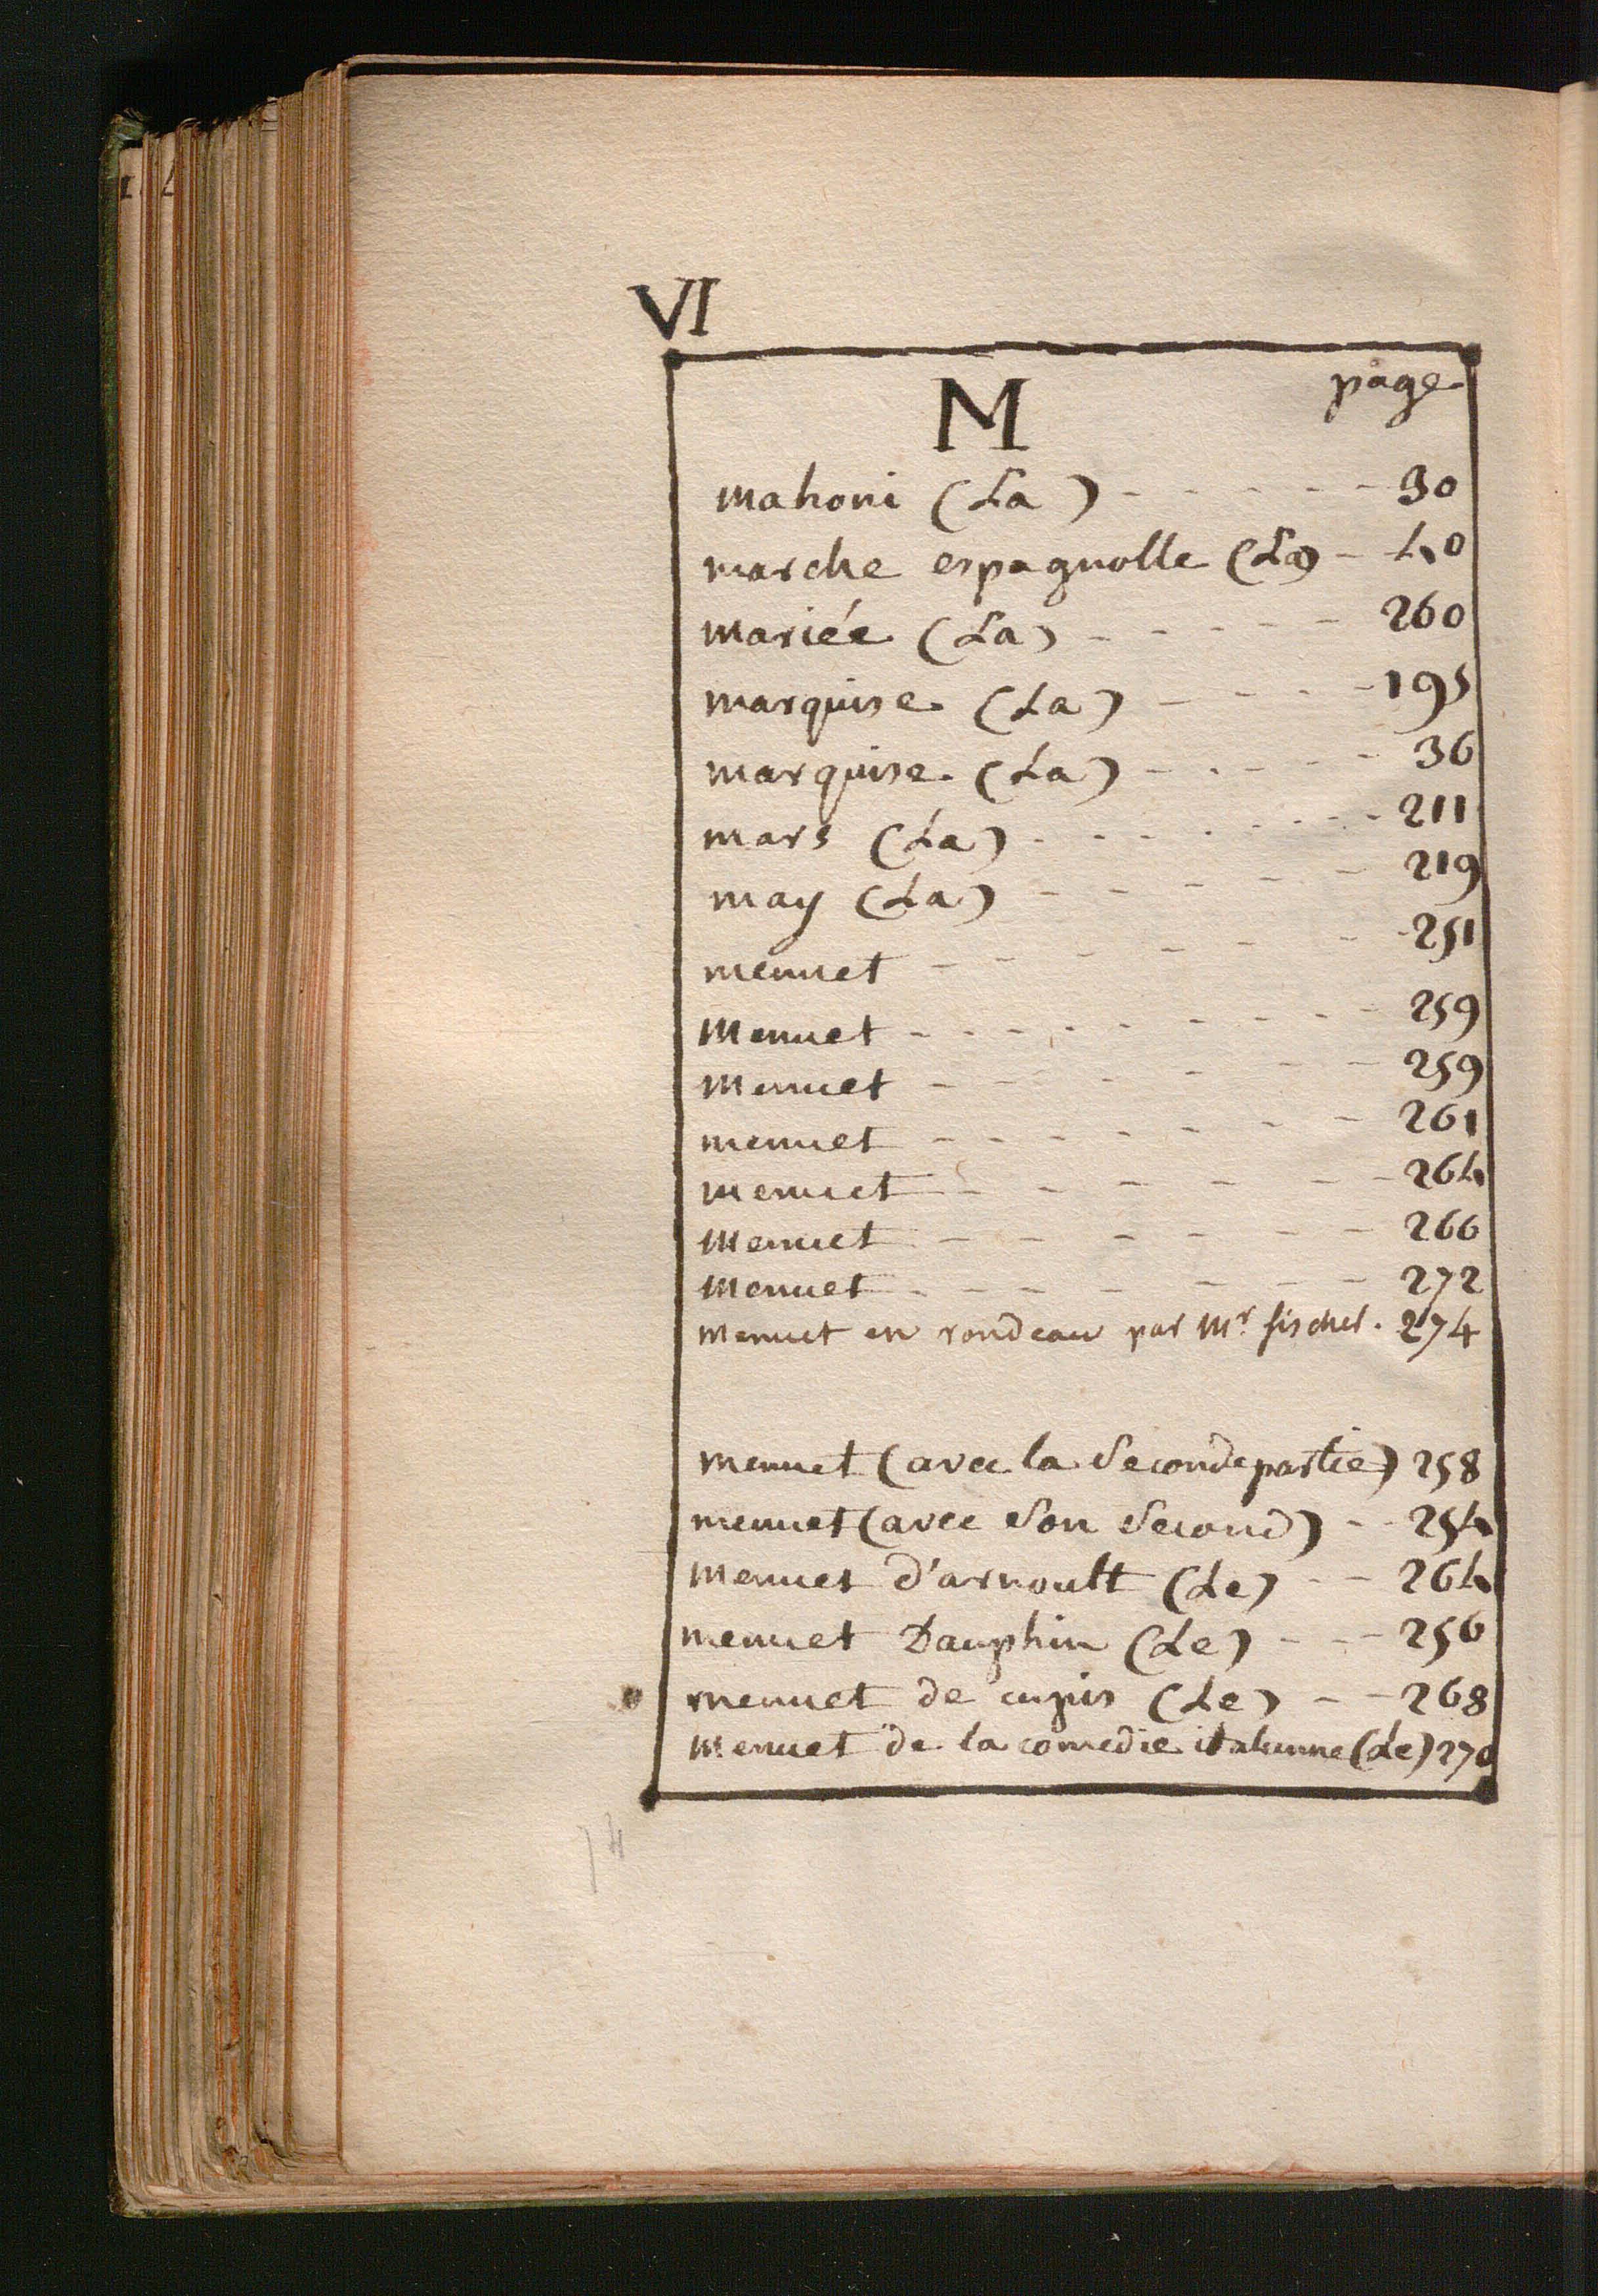 VI
M page
mahoni (La) - - - - - - 30
marche espagnolle (La) - 40
mariée (La) - - - - - 260
marquise (La) - - - - 195
marquise (La) - - - - - 36
mars (La) - - - - - - - - 211
may (La) - - - - - 219
menuet - - - - - - - 251
Menuet - - - - - - - - - 259
Menuet - - - - - - 259
menuet - - - - - - - - 261
menuet - - - - - - 264
Menuet - - - - - - 266
Menuet - - - - - - - 272
Menuet en rondeau par Mr. fischer. 274
menuet (avec la Seconde partie) 258
menuet (avec Son Second) - - 254
Menuet d'arnoult (Le) - - 264
menuet Dauphin (Le) - - - 256
menuet de cupis (Le) - - 268
Menuet de la comedie italienne (Le) 270